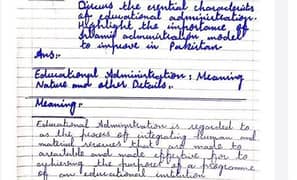 Discuss the essential characterists
of educational administration.
Highlight the importance of
Islamic administration model
to improve in Pakistan
Ans:-
Educational Administration : Meaning
Nature and other Details:-
Meaning:-
Educational Administration is regarded to
as the process of integrating human and
material that are made to
available and made effective for to
achieving the purpose of a programme
of an educational institution